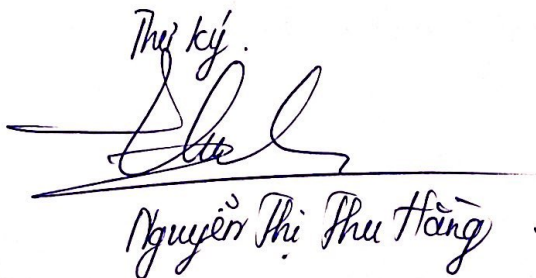 Thư ký.
Nguyễn Thị Thu Hằng